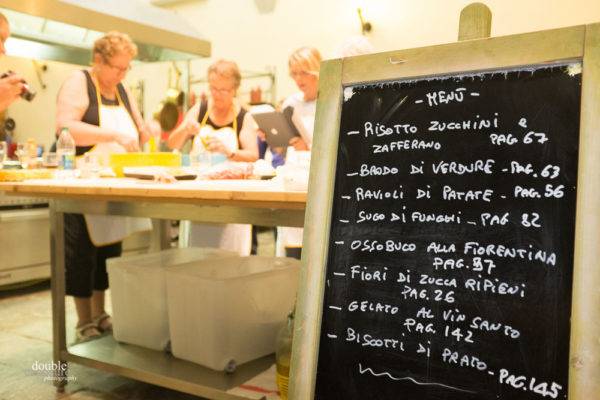 - MENÙ -
- RISOTTO ZUCCHINI e
ZAFFERANO PAG 67
- BRODO DI VERDURE - PAG. 63
- RAVIOLI DI PATATE - PAG. 56
- SUGO DI FUNGHI - PAG 82
- OSSOBUCO ALLA FIORENTINA
PAG. 97
- FIORI DI ZUCCA RIPIENI
PAG. 26
- GELATO AL VIN SANTO
PAG. 142
- BISCOTTI DI PRATO - PAG. 145
double
photography